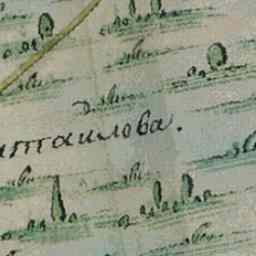 итаилова.